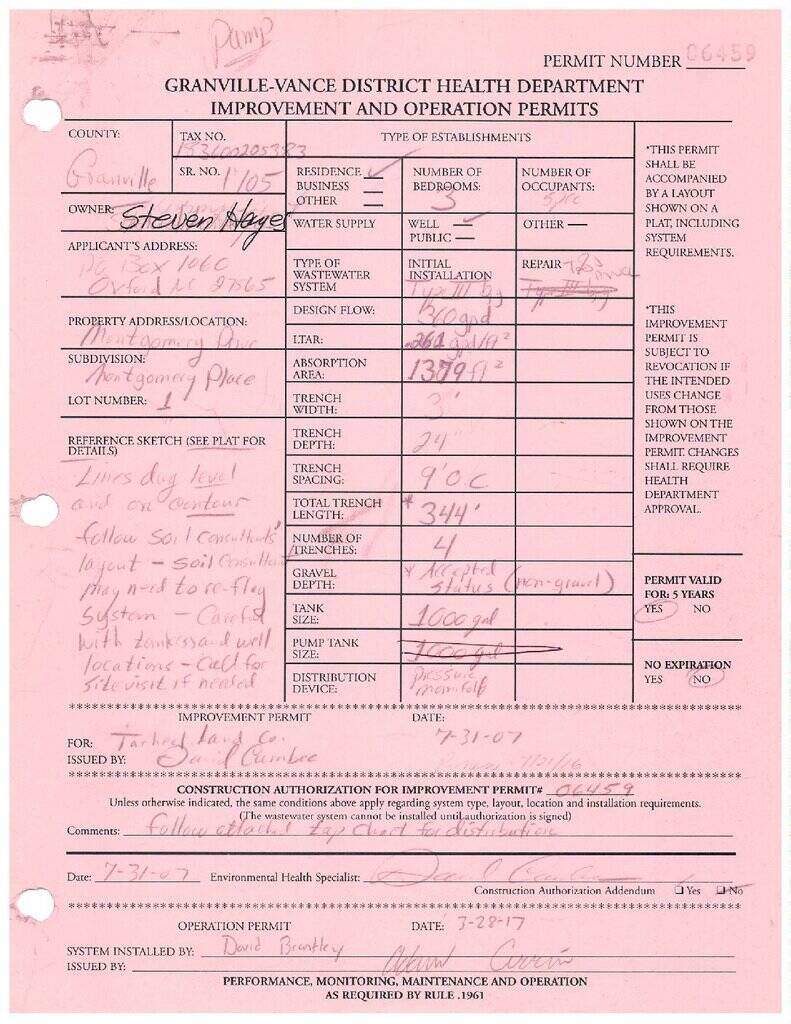 Pump
PERMIT NUMBER 06459
GRANVILLE-VANCE DISTRICT HEALTH DEPARTMENT
IMPROVEMENT AND OPERATION PERMITS
COUNTY:
Granville
TAX NO.
193600205383
SR. NO. 1105
TYPE OF ESTABLISHMENTS
RESIDENCE ✓
BUSINESS
OTHER
NUMBER OF
BEDROOMS:
3
NUMBER OF
OCCUPANTS:
*THIS PERMIT
SHALL BE
ACCOMPANIED
BY A LAYOUT
SHOWN ON A
PLAT, INCLUDING
SYSTEM
REQUIREMENTS.
OWNER: Steven Hayes
WATER SUPPLY
WELL ✓
PUBLIC —
OTHER —
APPLICANT'S ADDRESS:
PO Box 1060
Oxford NC 27565
TYPE OF
WASTEWATER
SYSTEM
INITIAL
INSTALLATION
Type III bg
REPAIR
Type III bg
DESIGN FLOW:
360 gpd
PROPERTY ADDRESS/LOCATION:
Montgomery Drive
LTAR:
.261 gpd/ft²
*THIS
IMPROVEMENT
PERMIT IS
SUBJECT TO
REVOCATION IF
THE INTENDED
USES CHANGE
FROM THOSE
SHOWN ON THE
IMPROVEMENT
PERMIT. CHANGES
SHALL REQUIRE
HEALTH
DEPARTMENT
APPROVAL.
SUBDIVISION:
Montgomery Place
LOT NUMBER: 1
ABSORPTION
AREA:
1379 ft²
TRENCH
WIDTH:
3'
REFERENCE SKETCH (SEE PLAT FOR
DETAILS)
Lines dug level
and on contour
follow soil consultants'
layout - soil consultant
may need to re-flag
system - Careful
with tank and well
locations - Call for
site visit if needed
TRENCH
DEPTH:
24"
TRENCH
SPACING:
9' O.C
TOTAL TRENCH
LENGTH:
* 344'
NUMBER OF
TRENCHES:
4
GRAVEL
DEPTH:
* Accepted
status (non-gravel)
TANK
SIZE:
1000 gal
PUMP TANK
SIZE:
1000 gal
DISTRIBUTION
DEVICE:
pressure
manifold
PERMIT VALID
FOR: 5 YEARS
YES NO
NO EXPIRATION
YES NO
IMPROVEMENT PERMIT DATE:
FOR: Tarheel Land Co. 7-31-07
ISSUED BY: David Cumbee
CONSTRUCTION AUTHORIZATION FOR IMPROVEMENT PERMIT# 06459
Unless otherwise indicated, the same conditions above apply regarding system type, layout, location and installation requirements.
(The wastewater system cannot be installed until authorization is signed)
Comments: follow attached tap chart for distribution
Date: 7-31-07 Environmental Health Specialist: David Cumbee
Construction Authorization Addendum ❑ Yes ❑ No
OPERATION PERMIT DATE: 3-28-17
SYSTEM INSTALLED BY: David Brantley
ISSUED BY: Adam
PERFORMANCE, MONITORING, MAINTENANCE AND OPERATION
AS REQUIRED BY RULE .1961